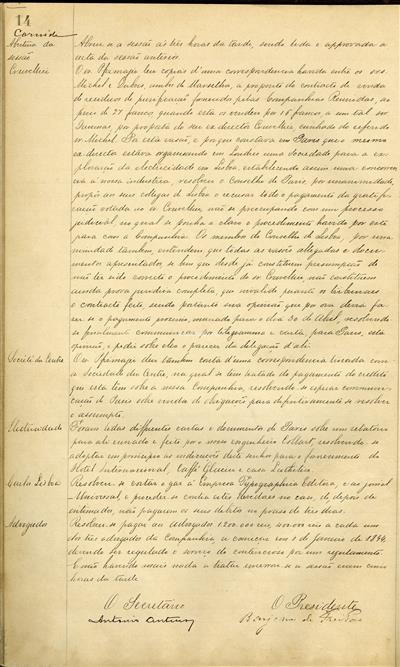 14
Corrside
Abertura da sessão
Abriu-se a sessão ás tres horas da tarde, sendo lida e approvada a
acta da sessão anterior.
O sr. leu copias d'uma correspondencia havida entre os srs.
Michel e Dubois, ambos de Marselha, a proposito do contracto de venda
de residuos de purificação fornecidos pelas Companhias Reunidas, ao
preço de 27 francos quando esta os vendeu por 18 francos, a um tal sr.
por proposta do seu ex director cunhado do referido
sr. Michel. Por esta razão, e porque constava em Paris que o mesmo
ex director estava organisando em Londres uma Sociedade para a ex-
ploração da electricidade em Lisboa, estabelecendo assim uma concorren-
cia a nossa industria, resolveu o Conselho de Paris, por unanimidade,
propôr aos seus collegas de Lisboa o recusar-lhe o pagamento da gratifi-
cação votada ao sr.
judicial, no qual se ponha a claro o procedimento havido por este
para com a Companhia. Os membros do Conselho de Lisboa, por una-
nimidade tambem, entendem, que todas as rasões allegadas e docu-
mentos apresentados, se bem que desde já constituem presumpção de
não ter sido correcto o procedimento do sr. não constituem
ainda prova juridica completa, que invalide perante os tribunaes
o contracto feito, sendo portanto sua opinião que por ora devia fazer-
se o pagamento provisorio, marcado para o dia 30 de Abril, resolvendo-
se finalmente communicar por telegramma e carta para Paris, esta
opinião, e pedir sobre ella o parecer da delegação d'ali.
Société du Centre
O sr. leu tambem carta d'uma correspondencia trocada com
a Sociedade du Centre, na qual se tem tratado do pagamento do credito
que esta tem sobre a nossa Companhia, resolvendo-se esperar communi-
cação de Paris sobre venda de obrigações para definitivamente se resolver
o assumpto.
Electricidade
Foram lidas differentes cartas e documentos de Paris sobre um relatorio
para ali enviado e feito por o nosso engenheiro Collart, resolvendo-se
adoptar em principio as indicações d'este senhor para o fornecimento do
Hotel Internacional, Caffé e casa
Resolveu-se cortar o gaz á Empresa Typographica Editora, e ao jornal
Universal, e proceder-se contra estes devedores no caso, de depois de
intimados, não pagarem os seus debitos no praso de tres dias.
Advogados
Resolveu-se pagar ao Advogado 1:200.000 reis, 400.000 reis a cada um
dos tres advogados da Companhia, a começar em 1 de Janeiro de 1894,
devendo ser regulado o serviço de contencioso por um regulamento.
E não havendo mais nada a tratar encerrou-se a sessão eram cinco
horas da tarde
O Secretario
O Presidente